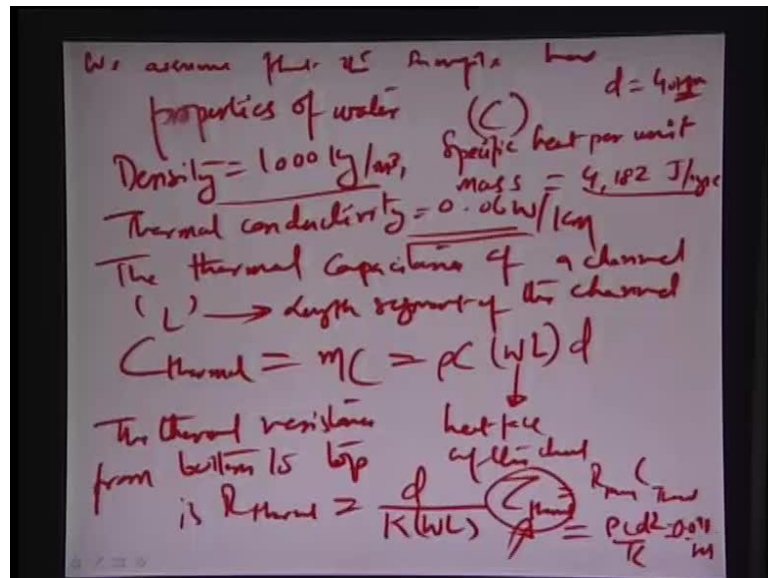 We assume that the sample has
d = 40 μm
properties of water
(C)
Density = 1000 kg/m³,
Specific heat per unit
mass = 4,182 J/kgK
Thermal conductivity = 0.06 W/Km
The thermal Capacitance of a channel
(L) → Length segment of the channel
C thermal = mC = ρC (WL) d
The thermal resistance
from bottom to top
is R thermal = d / K(WL)
heat face
of the
τ thermal = R C thermal
= ρCd² / K